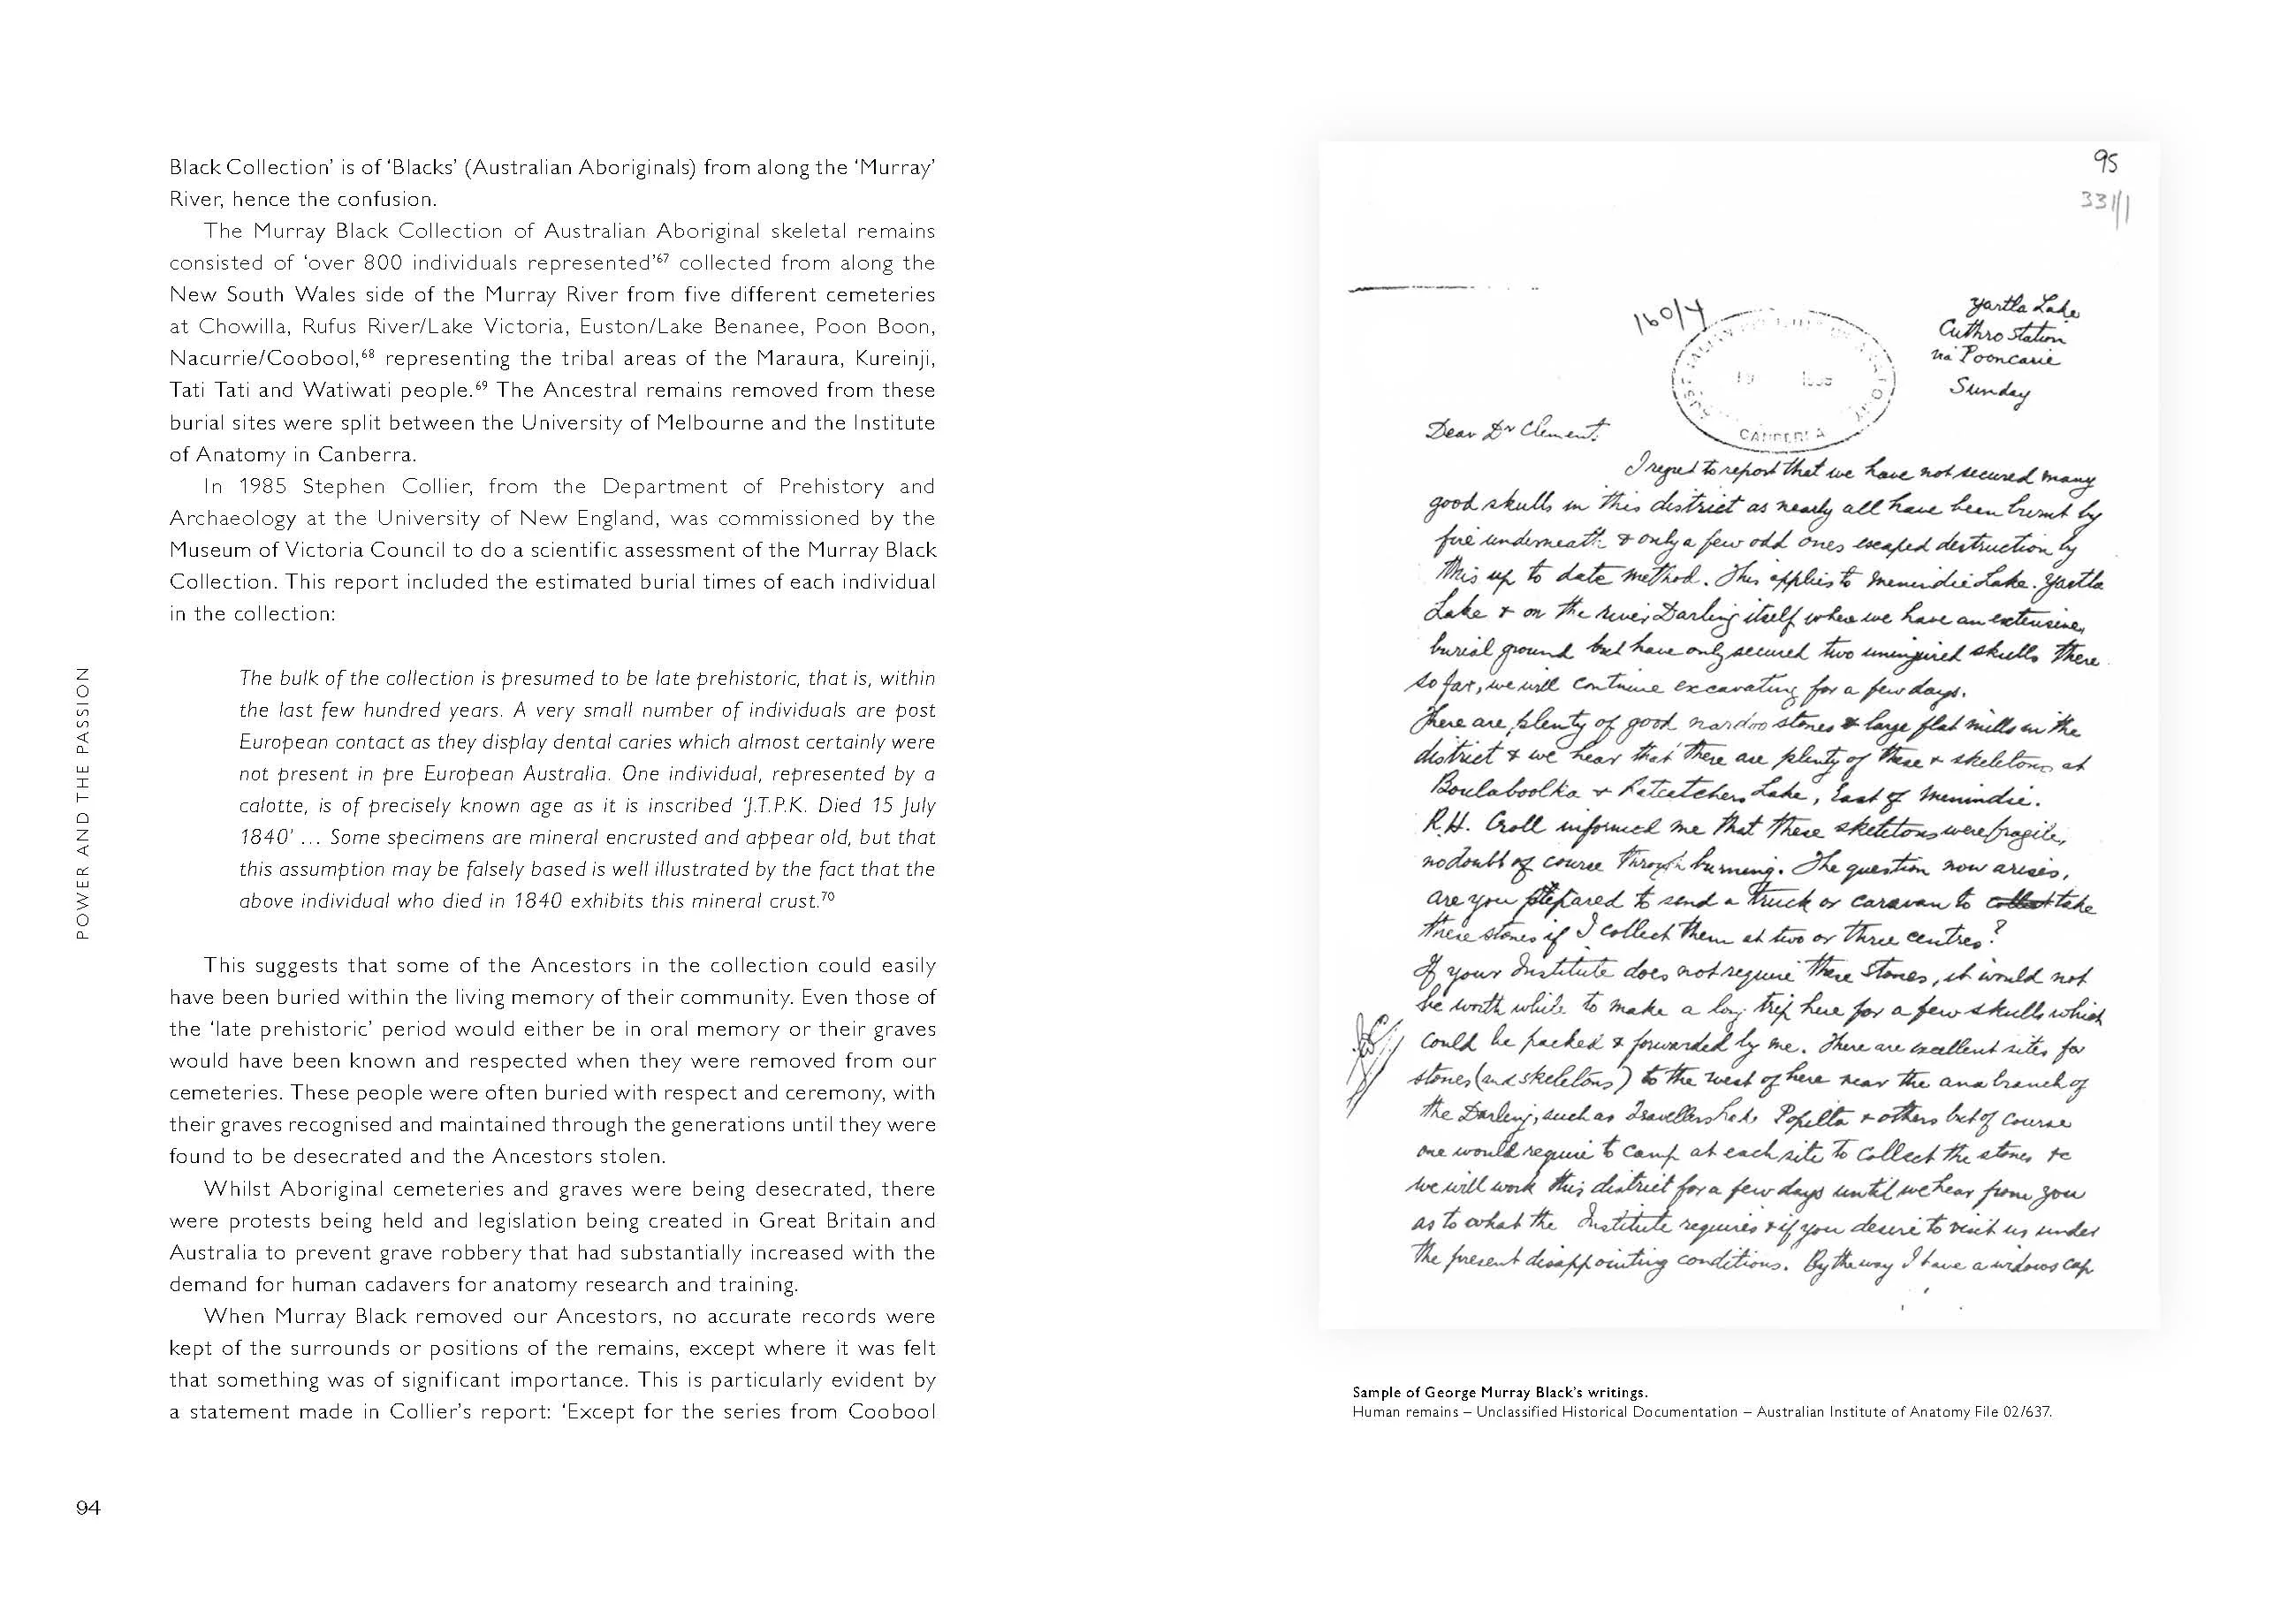 Black Collection’ is of ‘Blacks’ (Australian Aboriginals) from along the ‘Murray’
River, hence the confusion.
The Murray Black Collection of Australian Aboriginal skeletal remains
consisted of ‘over 800 individuals represented’67 collected from along the
New South Wales side of the Murray River from five different cemeteries
at Chowilla, Rufus River/Lake Victoria, Euston/Lake Benanee, Poon Boon,
Nacurrie/Coobool,68 representing the tribal areas of the Maraura, Kureinji,
Tati Tati and Watiwati people.69 The Ancestral remains removed from these
burial sites were split between the University of Melbourne and the Institute
of Anatomy in Canberra.
In 1985 Stephen Collier, from the Department of Prehistory and
Archaeology at the University of New England, was commissioned by the
Museum of Victoria Council to do a scientific assessment of the Murray Black
Collection. This report included the estimated burial times of each individual
in the collection:
The bulk of the collection is presumed to be late prehistoric, that is, within
the last few hundred years. A very small number of individuals are post
European contact as they display dental caries which almost certainly were
not present in pre European Australia. One individual, represented by a
calotte, is of precisely known age as it is inscribed ‘J.T.P.K. Died 15 July
1840’ ... Some specimens are mineral encrusted and appear old, but that
this assumption may be falsely based is well illustrated by the fact that the
above individual who died in 1840 exhibits this mineral crust.70
This suggests that some of the Ancestors in the collection could easily
have been buried within the living memory of their community. Even those of
the ‘late prehistoric’ period would either be in oral memory or their graves
would have been known and respected when they were removed from our
cemeteries. These people were often buried with respect and ceremony, with
their graves recognised and maintained through the generations until they were
found to be desecrated and the Ancestors stolen.
Whilst Aboriginal cemeteries and graves were being desecrated, there
were protests being held and legislation being created in Great Britain and
Australia to prevent grave robbery that had substantially increased with the
demand for human cadavers for anatomy research and training.
When Murray Black removed our Ancestors, no accurate records were
kept of the surrounds or positions of the remains, except where it was felt
that something was of significant importance. This is particularly evident by
a statement made in Collier’s report: ‘Except for the series from Coobool
POWER AND THE PASSION
94
95
331/1
160/4
CANBERRA
Yartla Lake
Cuthro Station
via Pooncarie
Sunday
Dear Dr Clement.
I regret to report that we have not secured many
good skulls in this district as nearly all have been burnt by
fire underneath & only a few odd ones escaped destruction by
this up to date method. This applies to Menindie Lake. Yartla
Lake & on the river Darling itself where we have an extensive
burial ground but have only secured two uninjured skulls there
so far, we will continue excavating for a few days.
There are plenty of good nardoo stones & large flat mills in the
district & we hear that there are plenty of these & skeletons at
Boulaboolka & Ratcatchers Lake, East of Menindie.
R.H. Croll informed me that these skeletons were fragile,
no doubt of course through burning. The question now arises,
are you prepared to send a truck or caravan to collect take
these stones if I collect them at two or three centres?
If your Institute does not require these stones, it would not
be worth while to make a long trip here for a few skulls which
could be packed & forwarded by me. There are excellent sites for
stones (and skeletons) to the west of here near the ana branch of
the Darling, such as Travellers Lake Popilta & others but of course
one would require to camp at each site to collect the stones &c
we will work this district for a few days until we hear from you
as to what the Institute requires & if you desire to visit us under
the present disappointing conditions. By the way I have a widows cap
Sample of George Murray Black’s writings.
Human remains – Unclassified Historical Documentation – Australian Institute of Anatomy File 02/637.